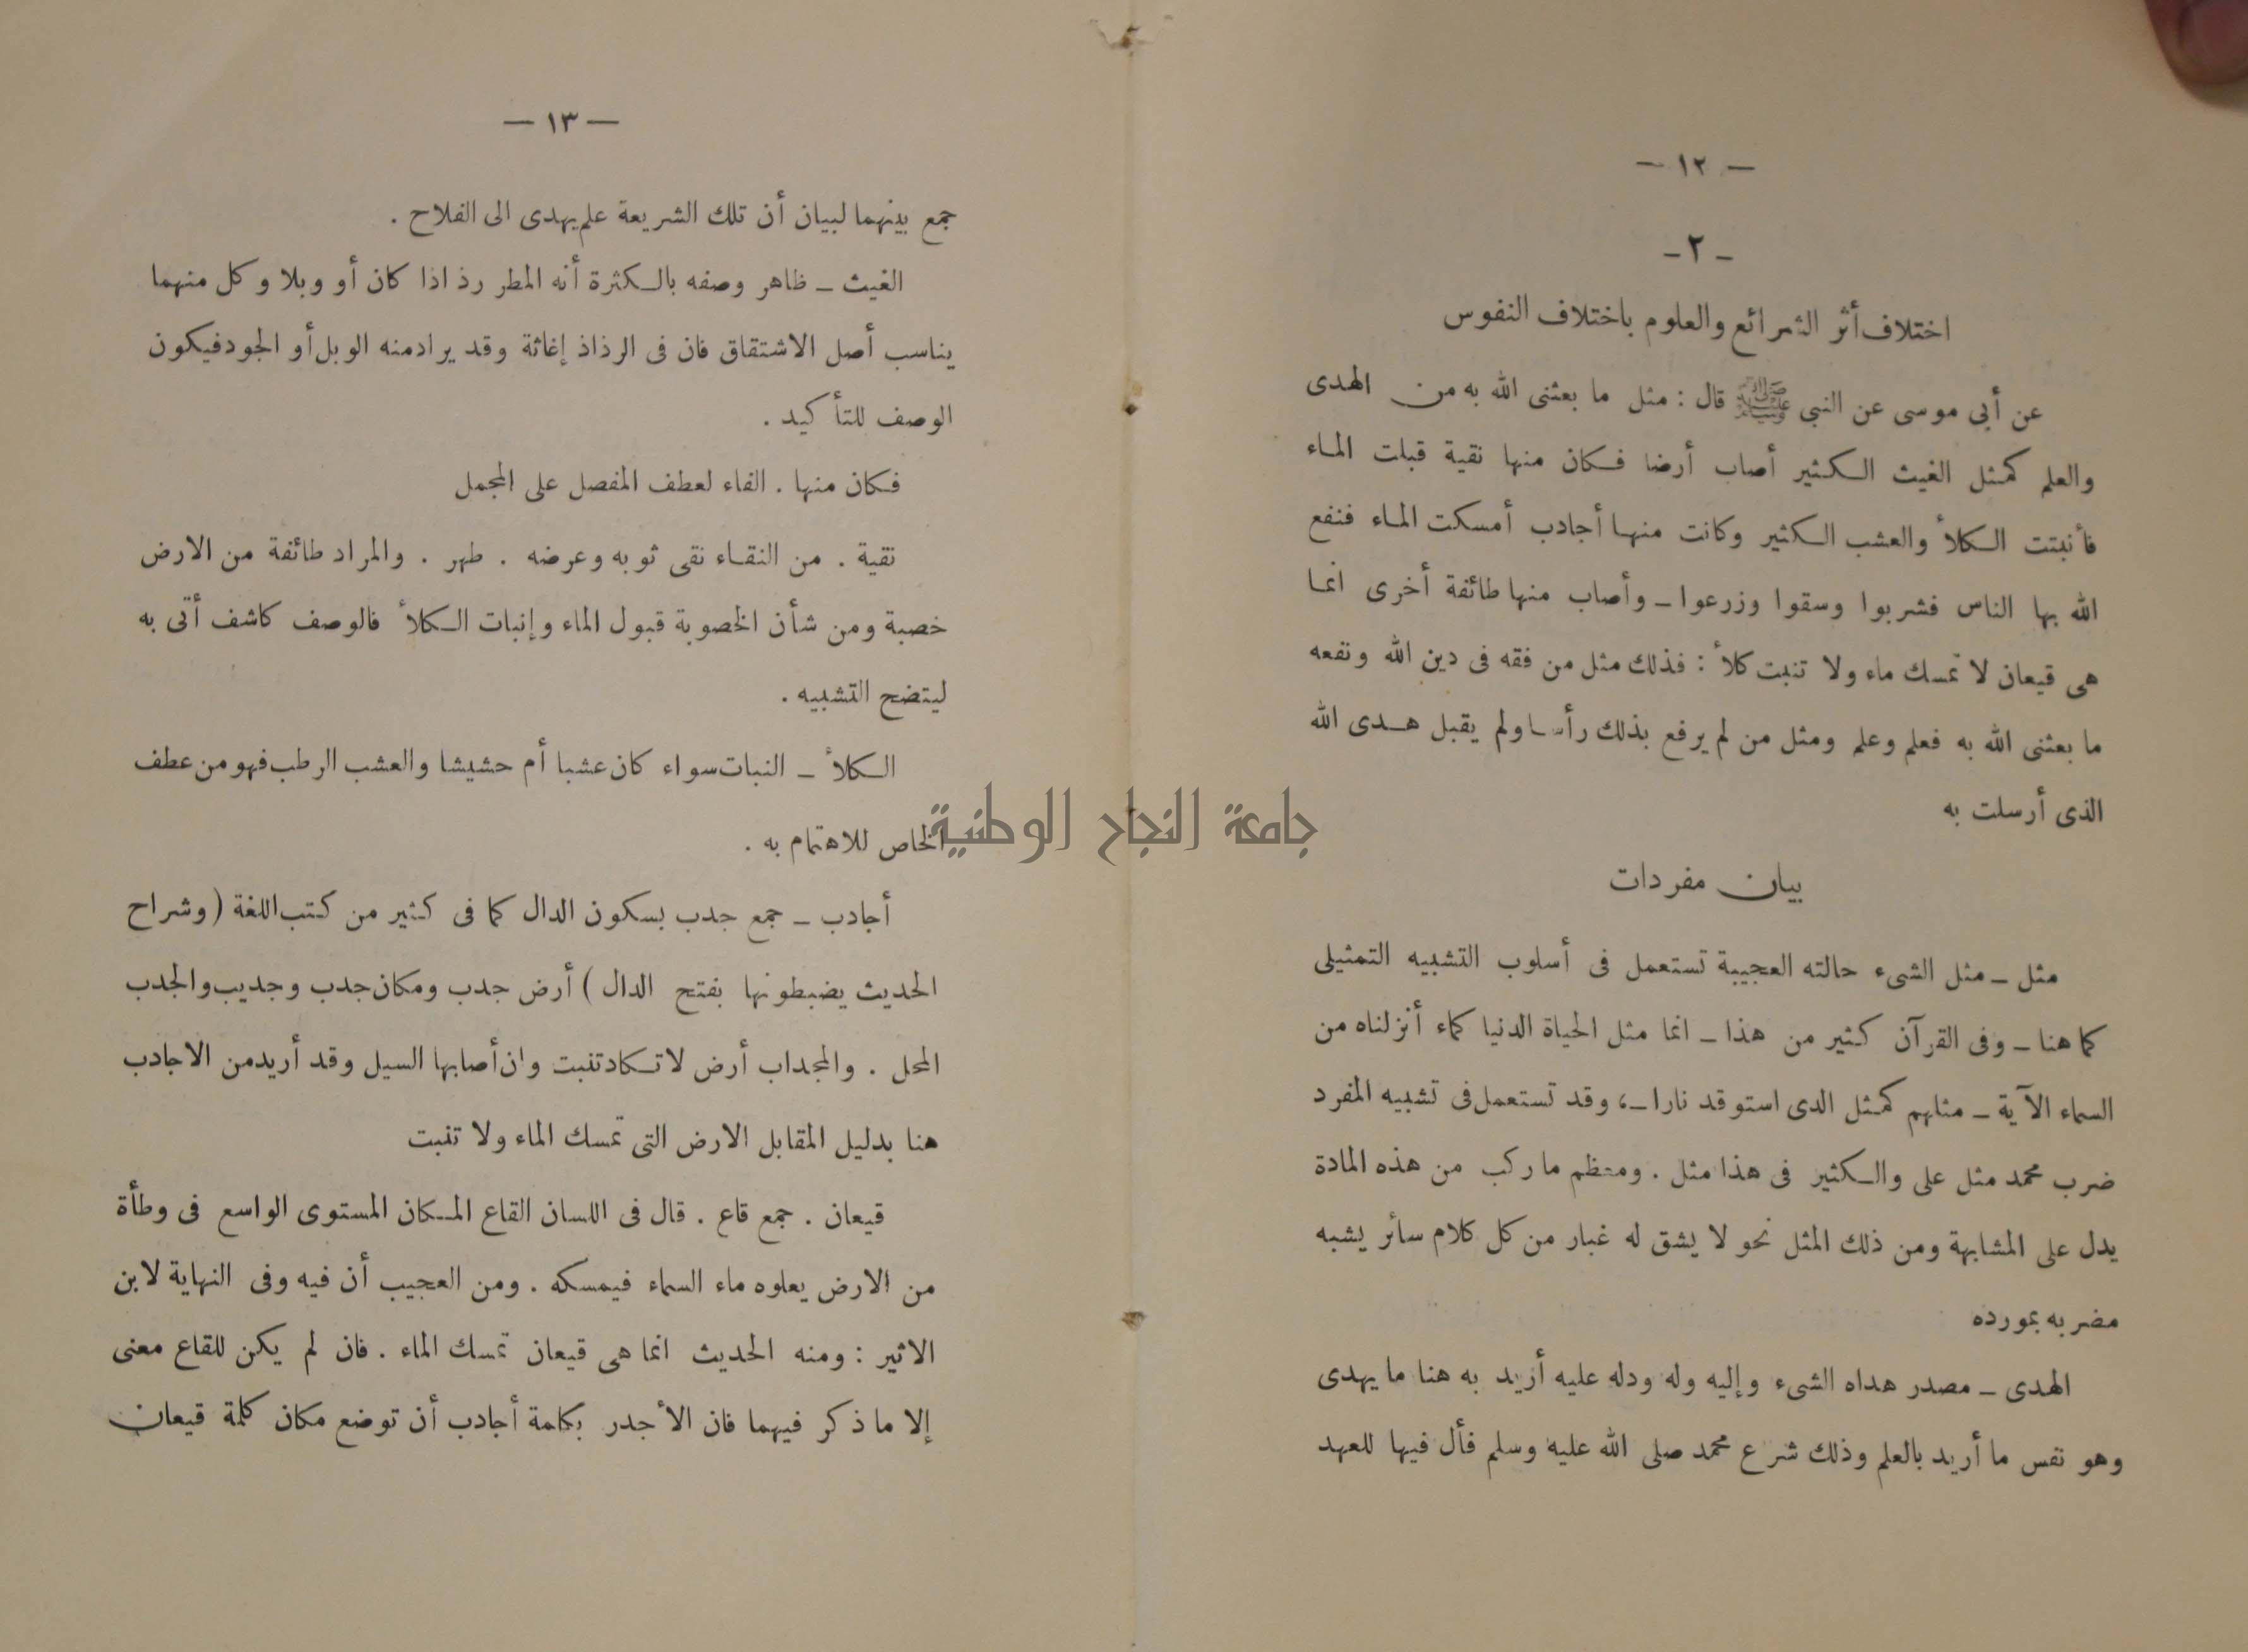 — ١٢ —
— ٢ —
اختلاف أثر الشرائع والعلوم باختلاف النفوس
عن أبى موسى عن النبى ﷺ قال : مثل ما بعثنى الله به من الهدى
والعلم كمثل الغيث الكثير أصاب أرضا فكان منها نقية قبلت الماء
فأنبتت الكلأ والعشب الكثير وكانت منها أجادب أمسكت الماء فنفع
الله بها الناس فشربوا وسقوا وزرعوا ـ وأصاب منها طائفة أخرى انما
هى قيعان لا تمسك ماء ولا تنبت كلأ : فذلك مثل من فقه فى دين الله ونفعه
ما بعثنى الله به فعلم وعلم ومثل من لم يرفع بذلك رأسا ولم يقبل هدى الله
الذى أرسلت به
بيان مفردات
مثل ـ مثل الشىء حالته العجيبة تستعمل فى أسلوب التشبيه التمثيلى
كما هنا ـ وفى القرآن كثير من هذا ـ انما مثل الحياة الدنيا كماء أنزلناه من
السماء الآية ـ مثلهم كمثل الذى استوقد نارا ـ، وقد تستعمل فى تشبيه المفرد
ضرب محمد مثل على والكثير فى هذا مثل . ومعظم ما ركب من هذه المادة
يدل على المشابهة ومن ذلك المثل نحو لا يشق له غبار من كل كلام سائر يشبه
مضربه بمورده
الهدى ـ مصدر هداه الشىء وإليه وله ودله عليه أريد به هنا ما يهدى
وهو نفس ما أريد بالعلم وذلك شرع محمد صلى الله عليه وسلم فأل فيها للعهد
— ١٣ —
جمع بينهما لبيان أن تلك الشريعة علم يهدى الى الفلاح .
الغيث ـ ظاهر وصفه بالكثرة أنه المطر رذاذا كان أو وبلا وكل منهما
يناسب أصل الاشتقاق فان فى الرذاذ إغاثة وقد يراد منه الوبل أو الجود فيكون
الوصف للتأكيد .
فكان منها . الفاء لعطف المفصل على المجمل
نقية . من النقاء نقى ثوبه وعرضه . طهر . والمراد طائفة من الارض
خصبة ومن شأن الخصوبة قبول الماء وإنبات الكلأ فالوصف كاشف أتى به
ليتضح التشبيه .
الكلأ ـ النبات سواء كان عشبا أم حشيشا والعشب الرطب فهو من عطف
الخاص للاهتمام به .
أجادب ـ جمع جدب بسكون الدال كما فى كثير من كتب اللغة (وشراح
الحديث يضبطونها بفتح الدال) أرض جدب ومكان جدب وجديب والجدب
المحل . والمجداب أرض لا تكاد تنبت وان أصابها السيل وقد أريد من الاجادب
هنا بدليل المقابل الارض التى تمسك الماء ولا تنبت
قيعان . جمع قاع . قال فى اللسان القاع المكان المستوى الواسع فى وطأة
من الارض يعلوه ماء السماء فيمسكه . ومن العجيب أن فيه وفى النهاية لابن
الاثير : ومنه الحديث انما هى قيعان تمسك الماء . فان لم يكن للقاع معنى
إلا ما ذكر فيهما فان الأجدر بكلمة أجادب أن توضع مكان كلمة قيعان
جامعة النجاح الوطنية